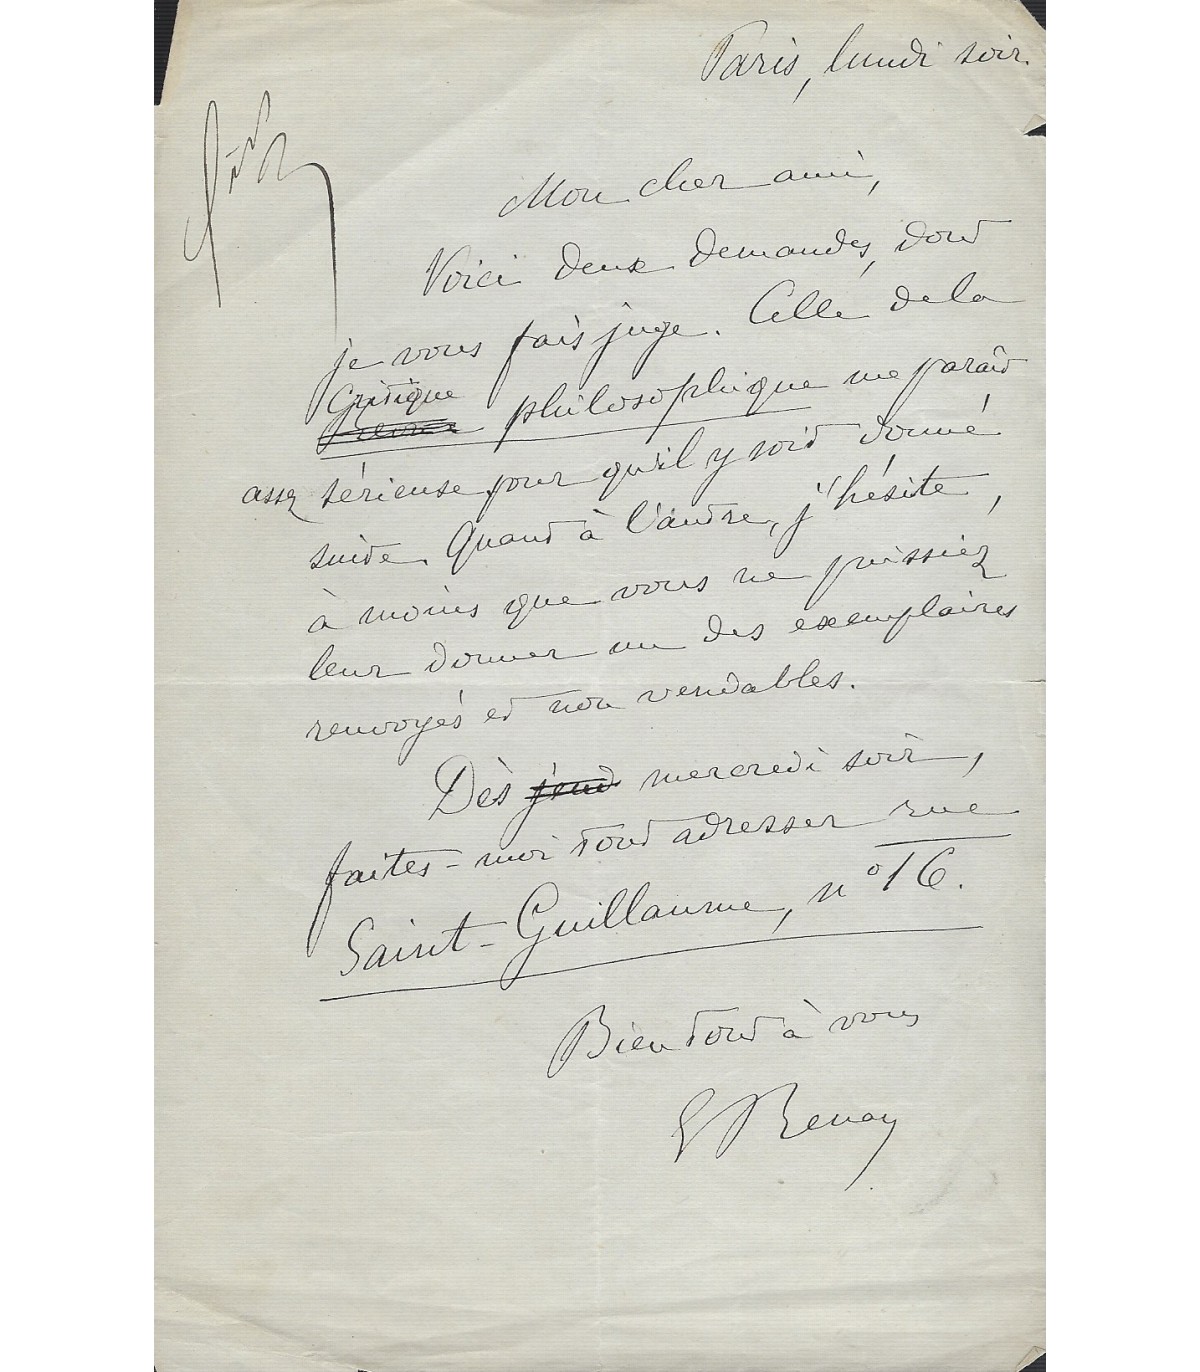 Paris, lundi soir.
Mon cher ami,
Voici deux demandes, dont
je vous fais juge. Celle de la
Critique
philosophique me paraît
assez sérieuse pour qu'il y soit donné
suite. Quand à l'autre, j'hésite,
à moins que vous ne puissiez
leur donner un des exemplaires
renvoyés et non vendables.
Dès jeud mercredi soir,
faites-moi tout adresser rue
Saint-Guillaume, n° 16.
Bien tout à vous
E Renan